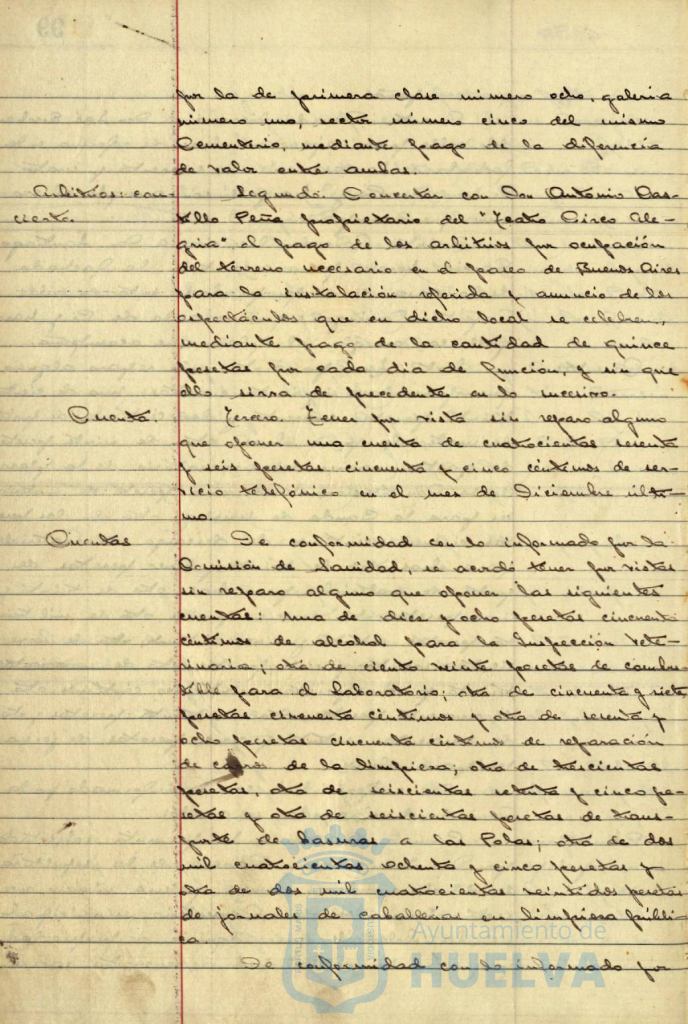 por la de primera clase número ocho, galería
número uno, sector número cinco del mismo
Cementerio, mediante pago de la diferencia
de valor entre ambas.
Arbitrios: con-
cierto.
Segundo. Concertar con Don Antonio Cas-
tillo Peña propietario del "Teatro Circo Ale-
gria" el pago de los arbitrios por ocupación
del terreno necesario en el paseo de Buenos Aires
para la instalación referida y anuncio de los
espectáculos que en dicho local se celebren,
mediante pago de la cantidad de quince
pesetas por cada dia de función, y sin que
ello sirva de precedente en lo sucesivo.
Cuenta.
Tercero. Tener por vista sin reparo alguno
que oponer una cuenta de cuatrocientas sesenta
y seis pesetas cincuenta y cinco céntimos de ser-
vicio telefónico en el mes de Diciembre últi-
mo.
Cuentas
De conformidad con lo informado por la
Comisión de Sanidad, se acordó tener por vistas
sin reparo alguno que oponer las siguientes
cuentas: una de diez y ocho pesetas cincuenta
céntimos de alcohol para la Inspección Vete-
rinaria; otra de ciento veinte pesetas de combus
tible para el Laboratorio; otra de cincuenta y siete
pesetas cincuenta céntimos y otra de sesenta y
ocho pesetas cincuenta céntimos de reparación
de carros de la limpieza; otra de trescientas
pesetas, otra de seiscientas setenta y cinco pe-
setas y otra de seiscientas pesetas de trans-
porte de basuras a las Polas; otra de dos
mil cuatrocientas ochenta y cinco pesetas y
otra de dos mil cuatrocientas veintidos pesetas
de jornales de caballerías en limpieza públi-
ca.
De conformidad con lo informado por
Ayuntamiento de
HUELVA